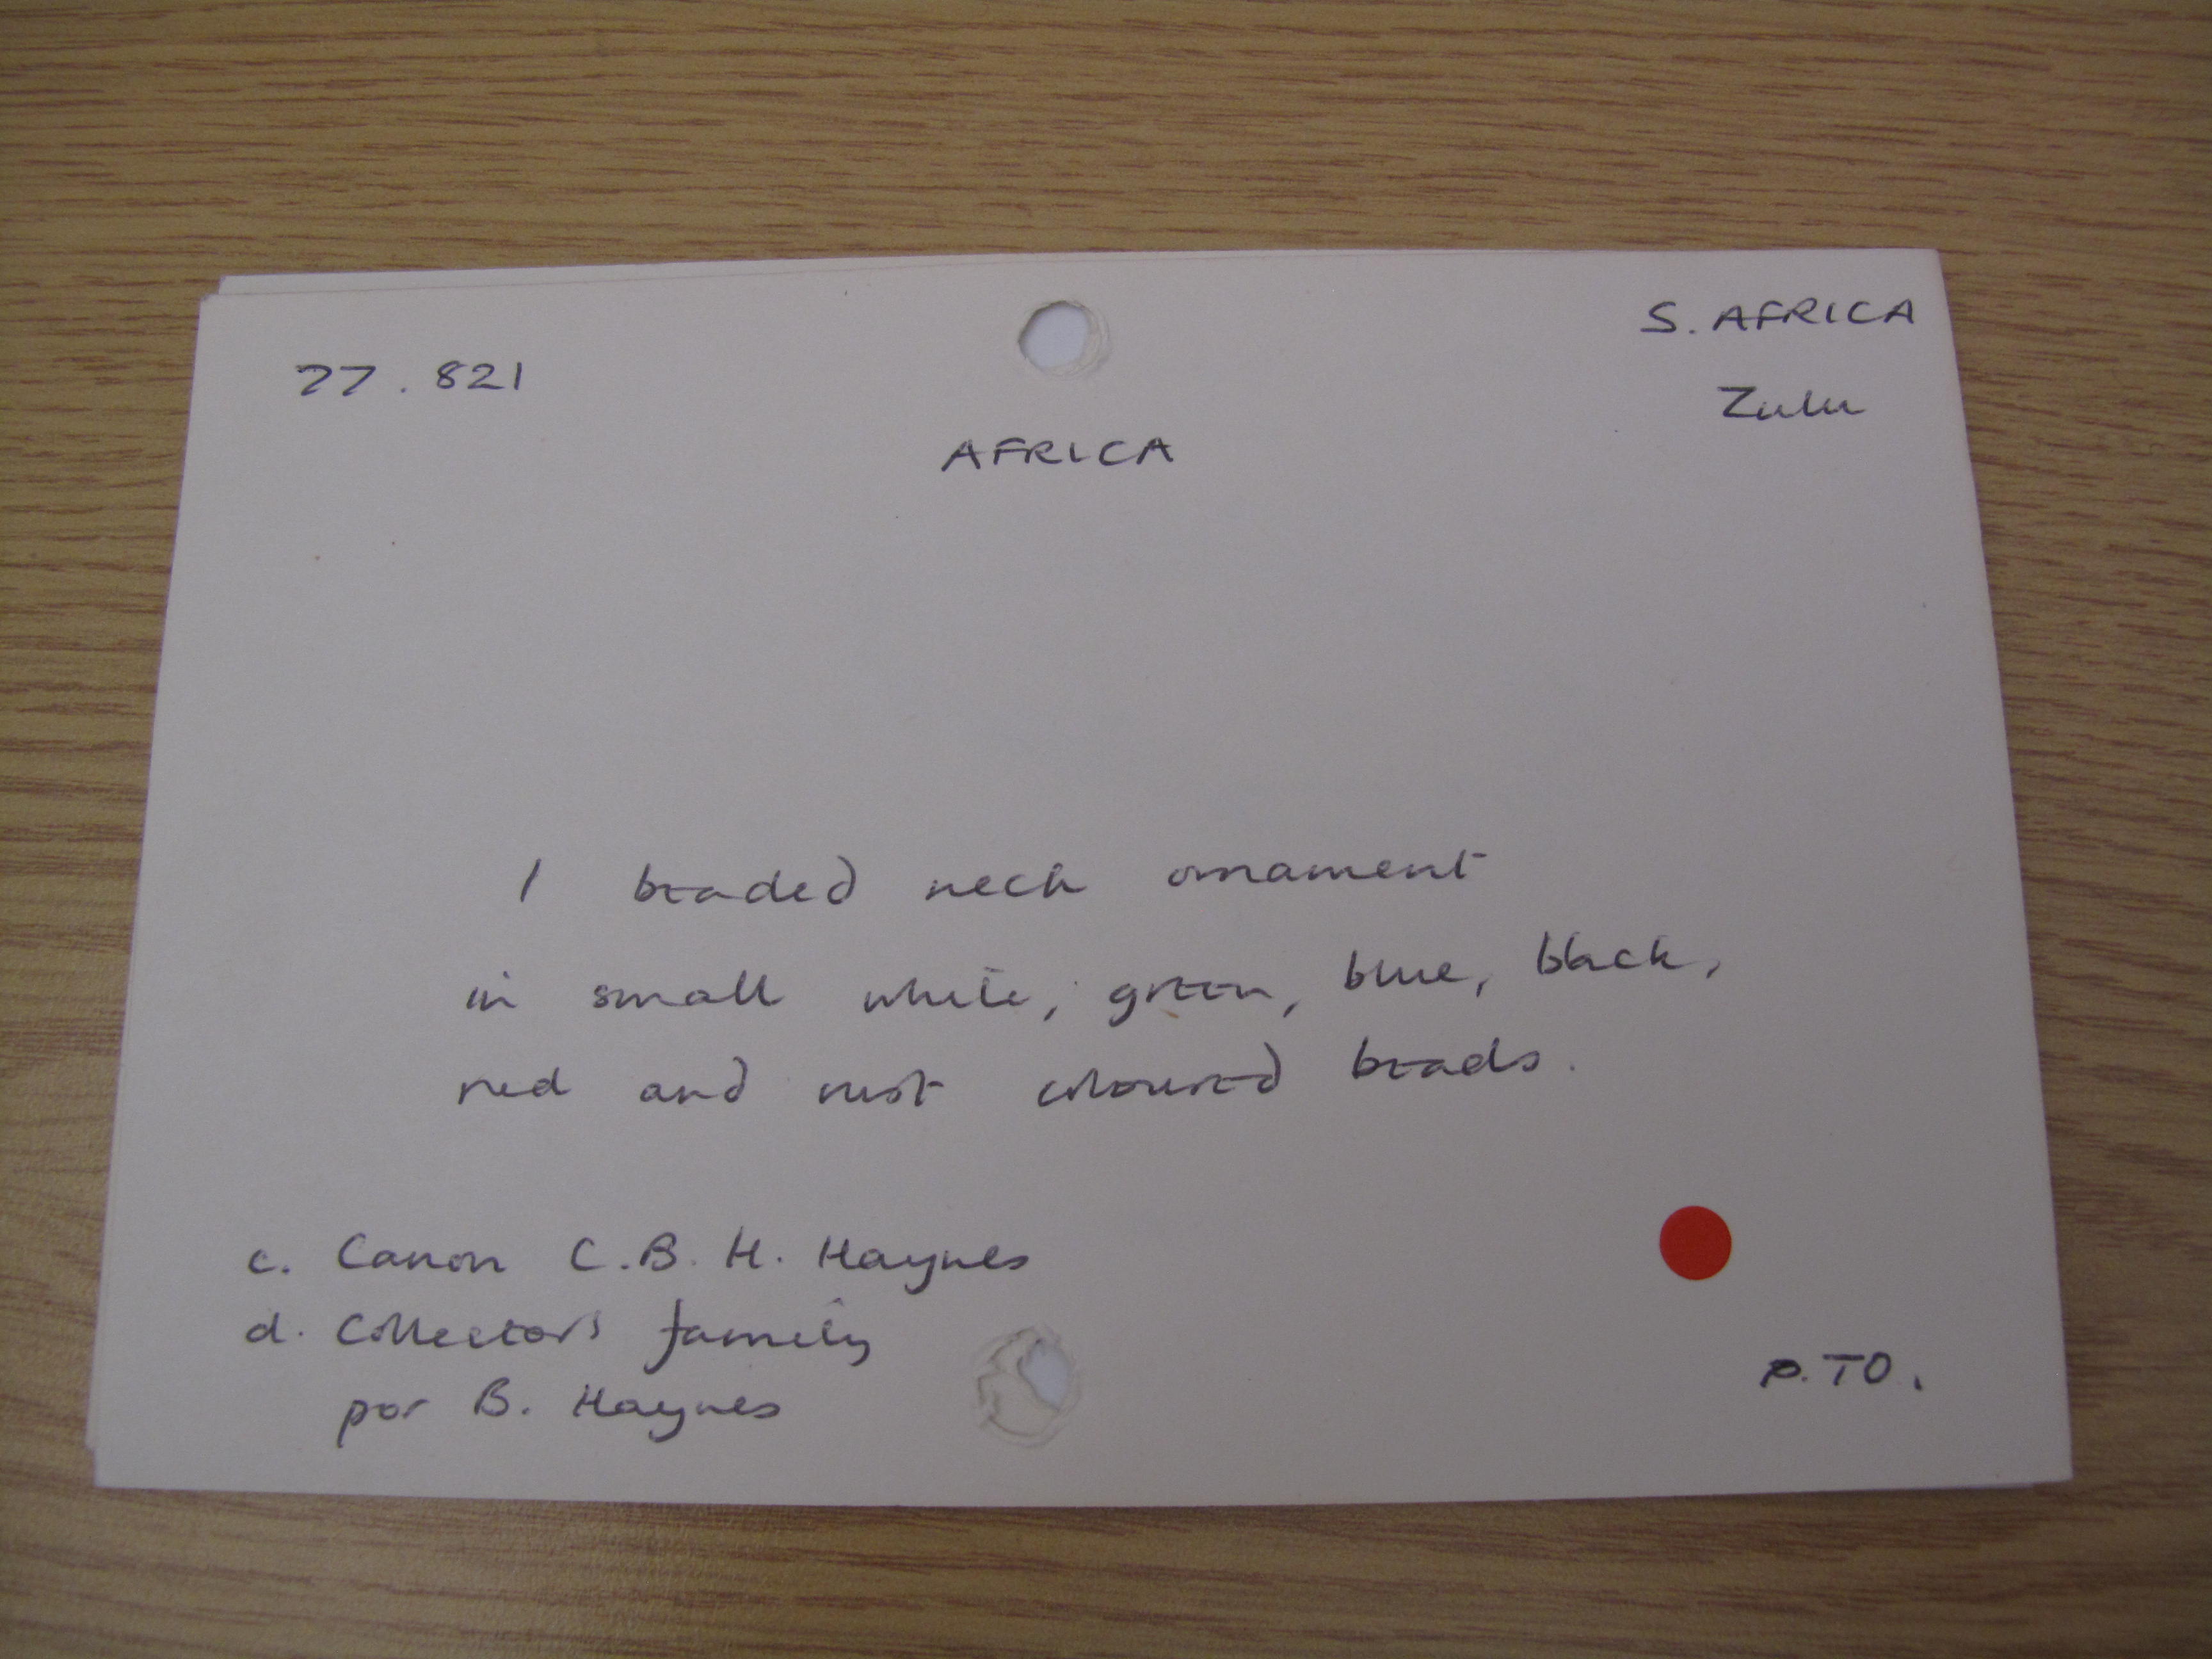 77.821
S. AFRICA
Zulu
AFRICA
1 beaded neck ornament
in small white, green, blue, black,
red and rust coloured beads.
c. Canon C.B.H. Haynes
d. Collector's family
per B. Haynes
P.TO.